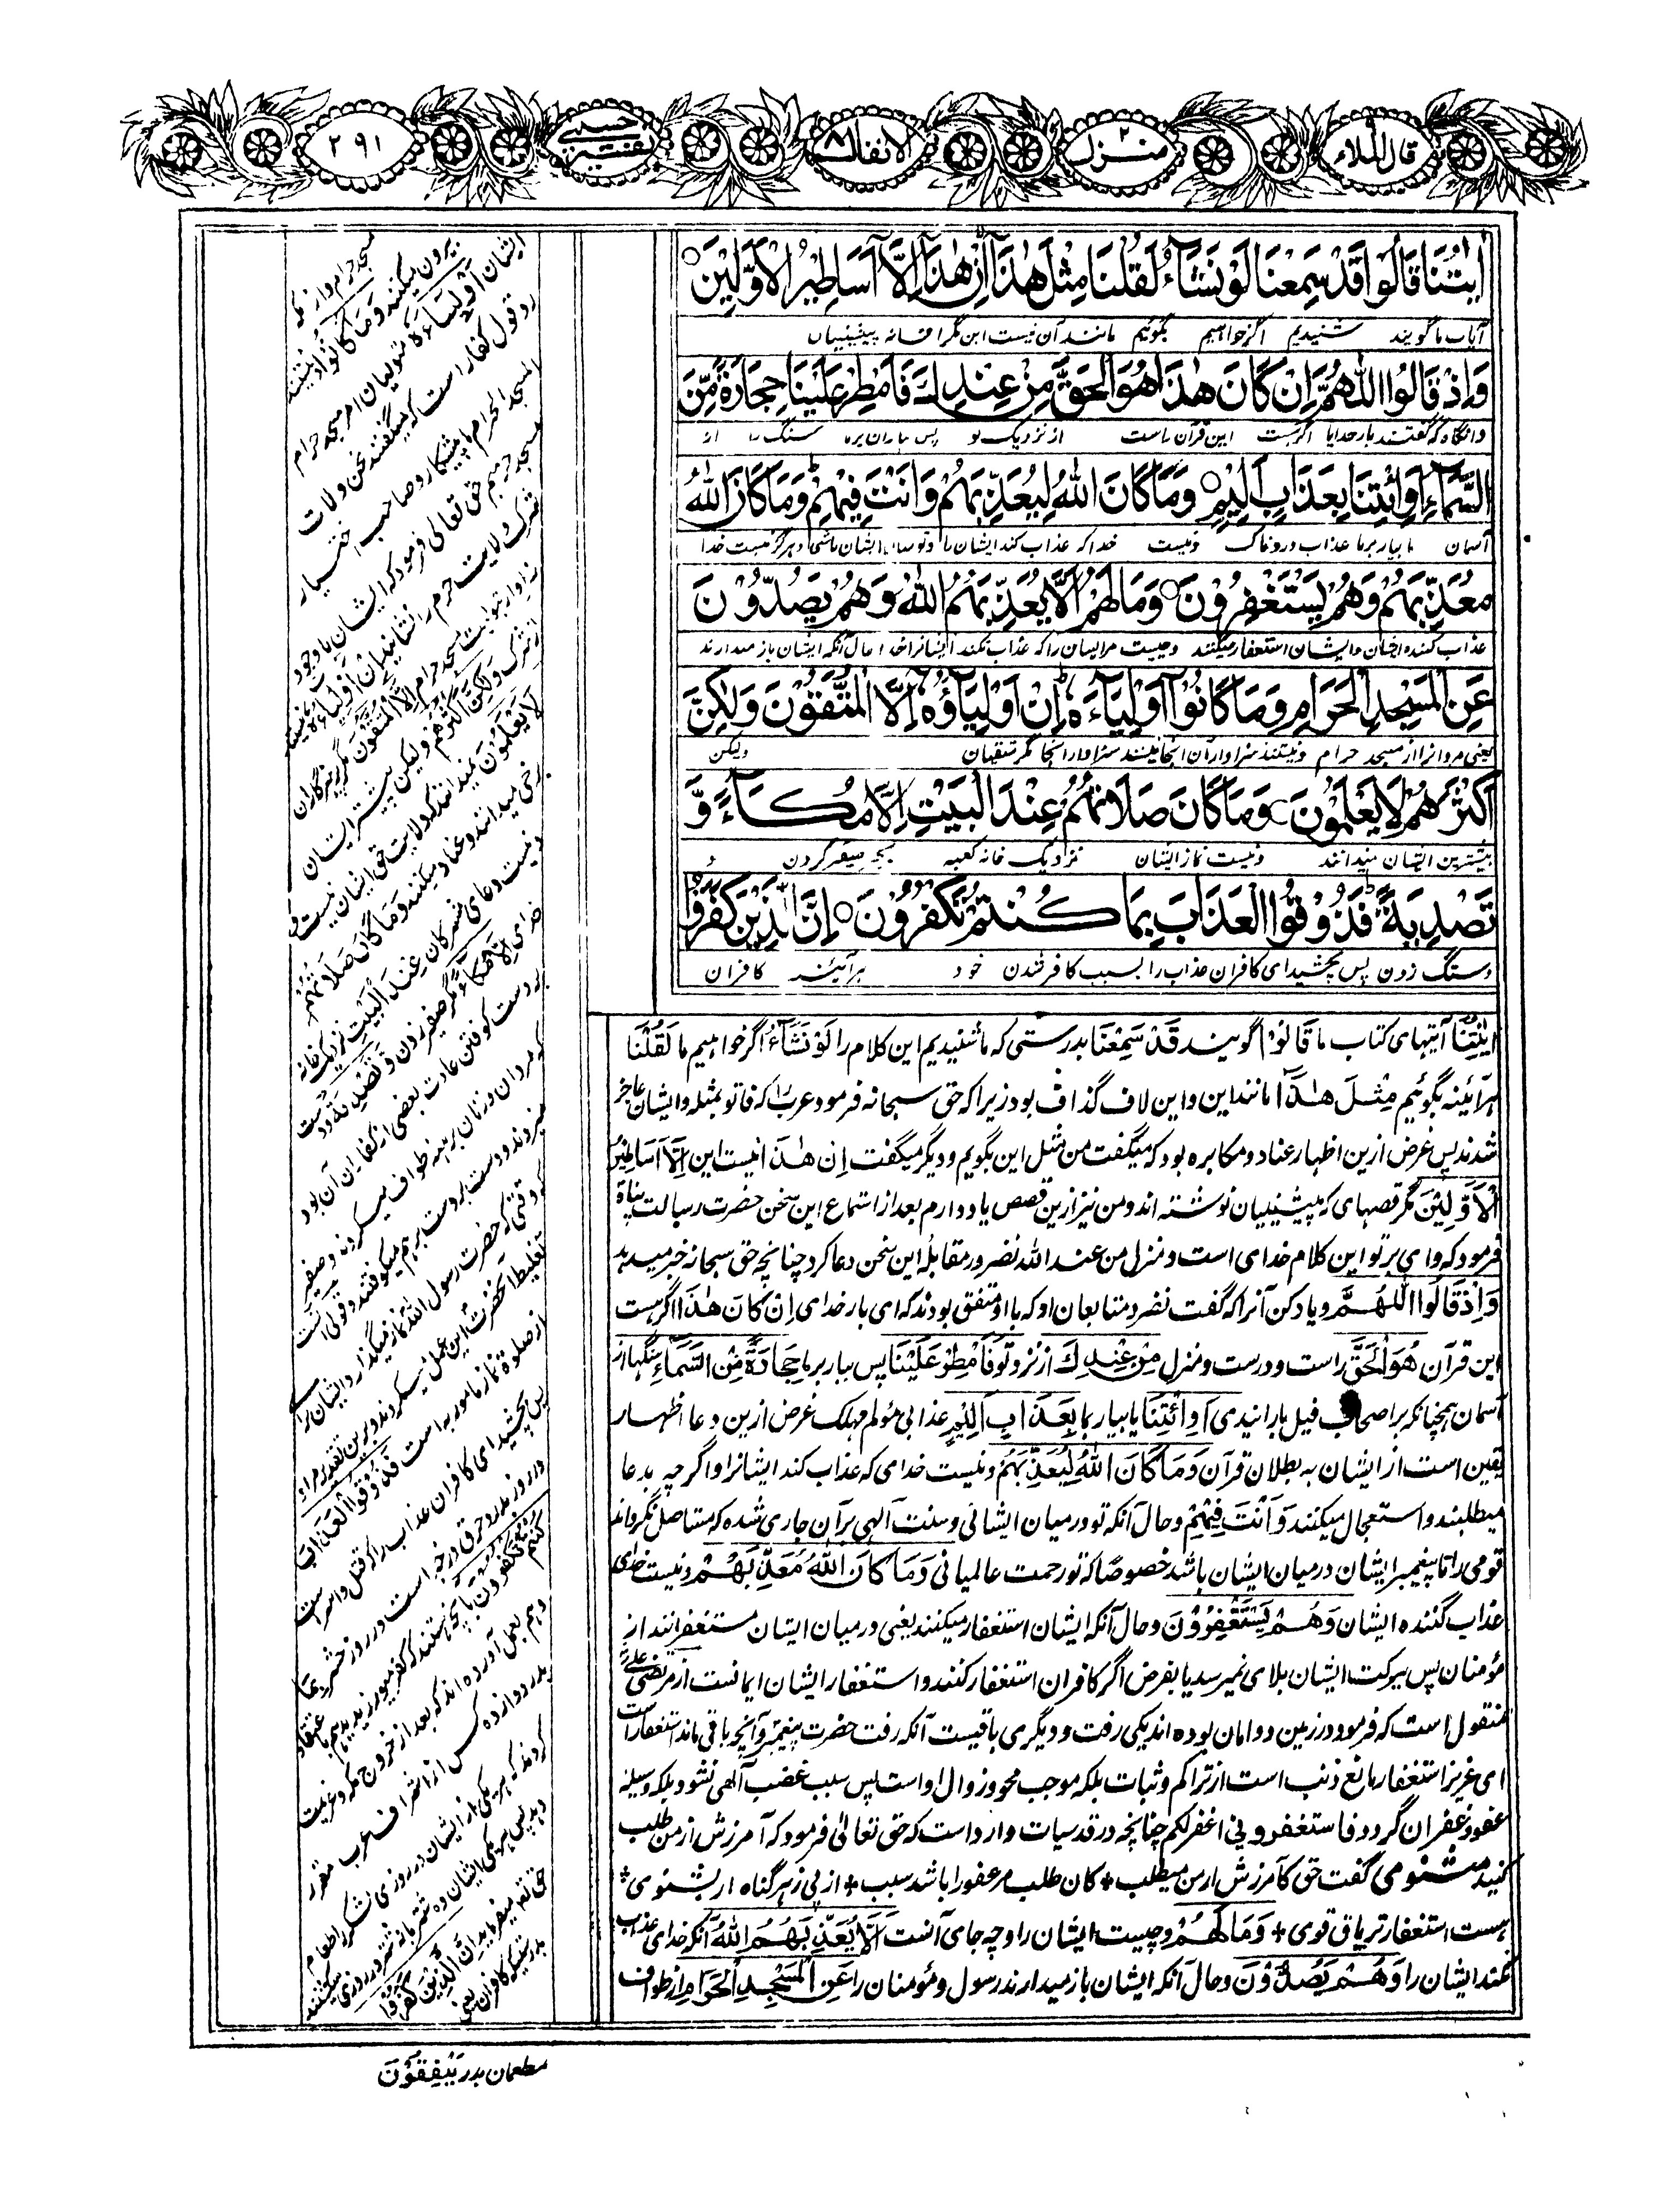 قال الملاء ٩
منزل ٢
الانفال ٨
تفسیر حسینی
٢٩١
اٰيٰتُنَا قَالُوْا قَدْ سَمِعْنَا لَوْ نَشَآءُ لَقُلْنَا مِثْلَ هٰذَآ اِنْ هٰذَآ اِلَّآ اَسَاطِيْرُ الْاَوَّلِيْنَ ۝
آیات ما گویند شنیدیم اگر خواهیم بگوئیم مانند آن نیست این مگر افسانه پیشینیان
وَاِذْ قَالُوا اللّٰهُمَّ اِنْ كَانَ هٰذَا هُوَ الْحَقَّ مِنْ عِنْدِكَ فَاَمْطِرْ عَلَيْنَا حِجَارَةً مِّنَ
و آنگاه که گفتند بار خدایا اگر هست این قرآن راست از نزدیک تو پس بباران بر ما سنگ را از
السَّمَآءِ اَوِ ائْتِنَا بِعَذَابٍ اَلِيْمٍ ۝ وَمَا كَانَ اللّٰهُ لِيُعَذِّبَهُمْ وَاَنْتَ فِيْهِمْ وَمَا كَانَ اللّٰهُ
آسمان یا بیار بر ما عذاب دردناک و نیست خدا که عذاب کند ایشان را و تو میان ایشان باشی و هرگز نیست خدا
مُعَذِّبَهُمْ وَهُمْ يَسْتَغْفِرُوْنَ ۝ وَمَا لَهُمْ اَلَّا يُعَذِّبَهُمُ اللّٰهُ وَهُمْ يَصُدُّوْنَ
عذاب کننده ایشان و ایشان استغفار میکنند و چیست مر ایشان را که عذاب نکند ایشانرا خدا و حال آنکه ایشان باز میدارند
عَنِ الْمَسْجِدِ الْحَرَامِ وَمَا كَانُوْٓا اَوْلِيَآءَهٗ اِنْ اَوْلِيَآؤُهٗٓ اِلَّا الْمُتَّقُوْنَ وَلٰكِنَّ
یعنی مردانرا از مسجد حرام و نیستند سزاوار آن نیستند سزاوار آنجا مگر متقیان ولیکن
اَكْثَرَهُمْ لَا يَعْلَمُوْنَ ۝ وَمَا كَانَ صَلَاتُهُمْ عِنْدَ الْبَيْتِ اِلَّا مُكَآءً وَّ
بیشترین ایشان نمیدانند و نیست نماز ایشان نزدیک خانه کعبه بجز صفیر کردن و
تَصْدِيَةً فَذُوْقُوا الْعَذَابَ بِمَا كُنْتُمْ تَكْفُرُوْنَ ۝ اِنَّ الَّذِيْنَ كَفَرُوْا
دستک زدن پس بچشید ای کافران عذاب را بسبب کافر شدن خود هر آئینه کافران
اٰیٰتُنَا آیتهای کتاب ما قَالُوْا گویند قَدْ سَمِعْنَا بدرستی که ما شنیدیم این کلام را لَوْ نَشَآءُ اگر خواهیم ما لَقُلْنَا
هر آئینه بگوئیم مِثْلَ هٰذَآ مانند این و این لاف گذاف بود زیرا که حق سبحانه فرمود عرب را که فاتو بمثله و ایشان عاجز
شدند پس غرض ازین اظهار عناد و مکابره بود که میگفت من مثل این بگویم و دیگر میگفت اِنْ هٰذَا نیست این اِلَّآ اَسَاطِيْرُ
الْاَوَّلِيْنَ مگر قصهای که پیشینیان نوشته اند و من نیز ازین قصص یاد دارم بعد از استماع این سخن حضرت رسالت پناه
فرمود که وای بر تو این کلام خدای است و منزل من عند الله نضر در مقابلهٔ این سخن دعا کرد چنانچه حق سبحانه خبر میدهد
وَاِذْ قَالُوا اللّٰهُمَّ و یاد کن آنرا که گفت نضر و متابعان او که با او متفق بودند که ای بار خدای اِنْ كَانَ هٰذَا اگر هست
این قرآن هُوَ الْحَقَّ راست و درست و منزل مِنْ عِنْدِكَ از نزد تو فَاَمْطِرْ عَلَيْنَا پس ببار بر ما حِجَارَةً مِّنَ السَّمَآءِ سنگها از
آسمان همچنانکه بر اصحاب فیل بارانیدی اَوِ ائْتِنَا یا بیار بما بِعَذَابٍ اَلِيْمٍ عذابی مؤلم مهلک غرض ازین دعا اظهار
یقین است از ایشان به بطلان قرآن وَمَا كَانَ اللّٰهُ لِيُعَذِّبَهُمْ و نیست خدای که عذاب کند ایشانرا و اگرچه بدعا
میطلبند و استعجال میکنند وَاَنْتَ فِيْهِمْ و حال آنکه تو در میان ایشانی و سنت الهی بر آن جاری شده که مستاصل نگرداند
قومی را تا پیغمبر ایشان در میان ایشان باشد خصوصا که تو رحمت عالمیانی وَمَا كَانَ اللّٰهُ مُعَذِّبَهُمْ و نیست خدای
عذاب کننده ایشان وَهُمْ يَسْتَغْفِرُوْنَ و حال آنکه ایشان استغفار میکنند یعنی در میان ایشان مستغفرانند از
مؤمنان پس ببرکت ایشان بلای نمیرسد یا بفرض اگر کافران استغفار کنند و استغفار ایشان ایمانست از مرتضی علی
منقول است که فرمود در زمین دو امان بوده اند یکی رفت و دیگری باقیست آنکه رفت حضرت پیغمبر و آنچه باقی ماند استغفار است
ای عزیز استغفار مانع ذنب است از تراکم و ثبات بلکه موجب محو و زوال او است پس سبب غضب الهی نشود بلکه وسیله
عفو و غفران گردد فاستغفرونی اغفر لکم چنانچه در قدسیات وارد است که حق تعالی فرمود که آمرزش از من طلب
کنید مثنوی گفت حق کآمرزش از من میطلب + کان طلب مر عفو را باشد سبب + از پی زهر گناه ار بشنوی +
هست استغفار تریاق قوی + وَمَا لَهُمْ و چیست ایشان را و چه جای آنست اَلَّا يُعَذِّبَهُمُ اللّٰهُ آنکه خدای عذاب
نکند ایشان را وَهُمْ يَصُدُّوْنَ و حال آنکه ایشان باز میدارند رسول و مؤمنان را عَنِ الْمَسْجِدِ الْحَرَامِ از طواف
مسجد حرام و از مکه
بیرون میکنند وَمَا كَانُوْٓا و نیستند
ایشان اَوْلِيَآءَهٗ متولیان امر مسجد حرام
رد قول کفار است که میگفتند نحن ولات
المسجد الحرام ما پیشکار و صاحب اختیار
مسجد حرمیم حق تعالی فرمود که ایشان با وجود
شرک ولایت حرم را نشایند اِنْ اَوْلِيَآؤُهٗ نیستند
سزاوار تولیت مسجد حرام اِلَّا الْمُتَّقُوْنَ مگر پرهیزگاران
از شرک وَلٰكِنَّ اَكْثَرَهُمْ ولیکن بیشتر ایشان
لَا يَعْلَمُوْنَ نمیدانند که ولایت حق ایشان نیست و
برخی میدانند و عناد میکنند وَمَا كَانَ صَلَاتُهُمْ
و نیست دعای مشرکان عِنْدَ الْبَيْتِ نزدیک خانه
خدای اِلَّا مُكَآءً مگر صفیر زدن وَّتَصْدِيَةً و دست
بر دست کوفتن عادت بعضی از کفار آن بود
که مردان و زنان برهنه طواف میکردند و صفیر
میزدند و دست بر دست بر هم میکوفتند و قولی آنست
که وقتی که حضرت رسول الله نماز میگذارد ایشان برای
تغلیط آنحضرت این عمل میکردند و برین تقدیر مراد
از صلوة نماز مامور به است فَذُوْقُوا الْعَذَابَ
پس بچشید ای کافران عذاب را که قتل و اسر است
در روز بدر و حرق در روز حشر بِمَا
كُنْتُمْ تَكْفُرُوْنَ بآنچه هستید که کفر میورزیدید هم باعتقاد
و هم بعمل آورده اند که بعد از خروج مکه و عزیمت
بدر دوازده کس از اشراف عرب مقرر
کردند که هر یکی از ایشان در روزی لشکر را طعام
دهد پس هر یکی ایشان ده شتر در روزی میکشتند
حق تعالی میفرماید اِنَّ الَّذِيْنَ كَفَرُوْا
بدرستیکه کافران یعنی
مطعمان بدر يُنْفِقُوْنَ